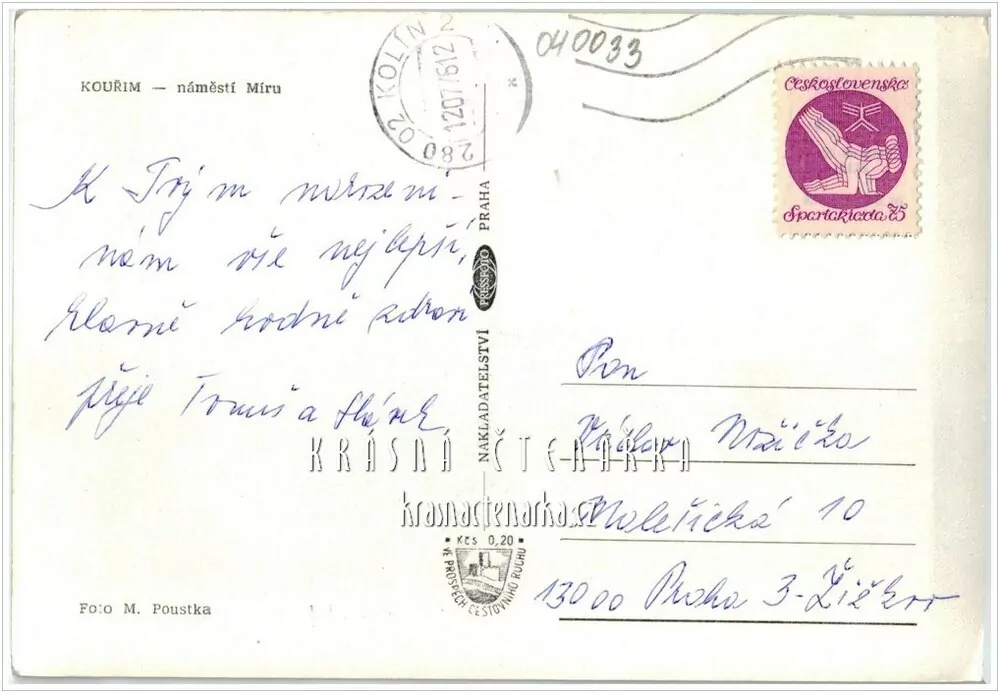 KOUŘIM — náměstí Míru
K Tvým narozeni-
nám vše nejlepší,
hlavně hodně zdraví
přeje Tomuš a
Foto M. Poustka
280 02 KOLÍN 2
040033
Československo
Spartakiada 75
NAKLADATELSTVÍ PRESSFOTO PRAHA
KRÁSNÁ ČTENÁŘKA
krasnactenarka.cz
• Kčs 0,20 •
VE PROSPĚCH CESTOVNÍHO RUCHU
Pan
Václav Nožička
Malešická 10
13000 Praha 3-Žižkov